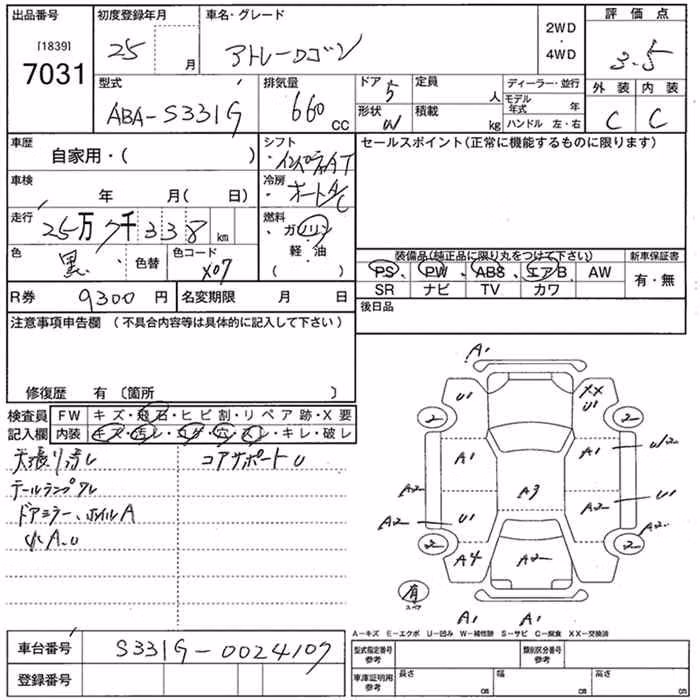 出品番号 初度登録年月 車名・グレード 評価点
[1839] 7031 25 月 アトレーワゴン 2WD・4WD 3.5
型式 排気量 ドア 5 定員 人 ディーラー・並行 外装 内装
ABA-S331G 660 CC 形状 W 積載 kg モデル年式 年 C C
ハンドル 左・右
車歴 シフト セールスポイント(正常に機能するものに限ります)
自家用・( ) インパネAT
車検 年 月( 日) 冷房 オートA/C
走行 25万7千338 km 燃料 ガソリン
色 黒 色替 色コード X07 軽・油
( )
装備品(純正品に限り丸をつけて下さい) 新車保証書
PS、PW、ABS、エアB、AW 有・無
SR ナビ TV カワ
R券 9300円 名変期限 月 日 後日品
注意事項申告欄 (不具合内容等は具体的に記入して下さい)
修復歴 有 〔箇所 〕
検査員 FW キズ・飛石・ヒビ割・リペア跡・X要
記入欄 内装 キズ・汚レ・コゲ・穴・スレ・キレ・破レ
天張り汚レ コアサポートU
テールランプワレ
ドアミラー、ホイルA
小A.U
A1
U1 XX U1
2 2
A1 A1 U12
A2 A3 A2 U1
A2 U1 A2
2 2
A4 A2
有
スペア
A1 A1
A-キズ E-エクボ U-凹み W-補修跡 S-サビ C-腐食 XX-交換済
車台番号 S331G-0024107 型式指定番号 参考 類別区分番号 参考
登録番号 車庫証明用 参考 長さ cm 幅 cm 高さ cm